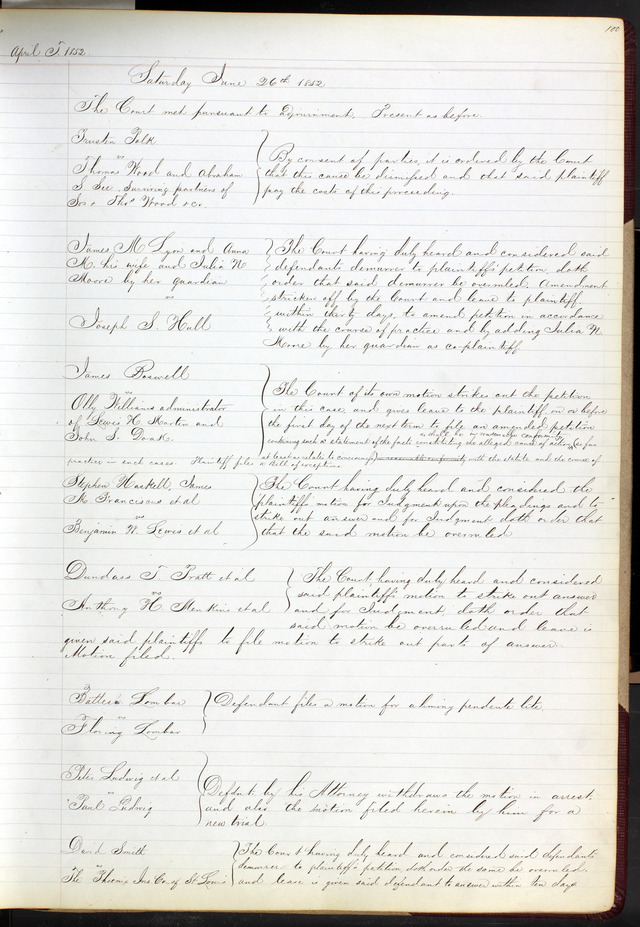 100
April T. 1852
Saturday June 26th 1852
The Court met pursuant to adjournment. Present as before.
Trusten Polk
vs
Thomas Wood and Abraham
S. See, Surviving partners of
Thos Wood & Co.
By consent of parties, it is ordered by the Court
that this cause be dismissed and that said plaintiff
pay the costs of this proceeding.
James M Lyon and Anna
M. his wife and Julia N
Moore by her guardian
vs
Joseph S. Hull
The Court having duly heard and considered said
defendants demurrer to plaintiffs petition, doth
order that said demurrer be overruled. Amendment
stricken off by the Court and leave to plaintiff
within thirty days, to amend petition in accordance
with the course of practice and by adding Julia N.
Moore by her guardian as co-plaintiff.
James Boswell
vs
Olly Williams administrator
of Lewis H. Martin and
John S. Doak.
The Court of its own motion strikes out the petition
in this case and gives leave to the plaintiff, on or before
the first day of the next term to file an amended petition
containing such a statement of the facts constituting the alleged cause of action, (so far
at least as relate to coverage) as shall be in reasonable conformity with the statute and the course of
practice in such cases. Plaintiff files a Bill of exceptions.
Stephen Haskell, James
M. Franciscus et al
vs
Benjamin W. Lewis et al
The Court having duly heard and considered the
plaintiffs motion for Judgment upon the pleadings and to
strike out answer and for Judgment doth order that
that the said motion be overruled
Dundass T. Pratt et al
vs
Anthony H Menkins et al
The Court, having duly heard and considered
said plaintiffs motion to strike out answer
and for Judgment, doth order that
said motion be overruled and leave is
given said plaintiffs to file motion to strike out parts of answer
Motion filed.
Lombar
vs
Lombar
Defendant files a motion for alimony pendente lite.
Peter Ludwig et al
vs
Paul Ludwig
Defdnt. by his Attorney withdraws the motion in arrest,
and also the motion filed herein by him for a
new trial
David Smith
vs
The Phoenix Ins Co. of St Louis
The Court having duly heard and considered said defendants
demurrer to plaintiffs petition, doth order the same be overruled,
and leave is given said defendant to answer within ten days